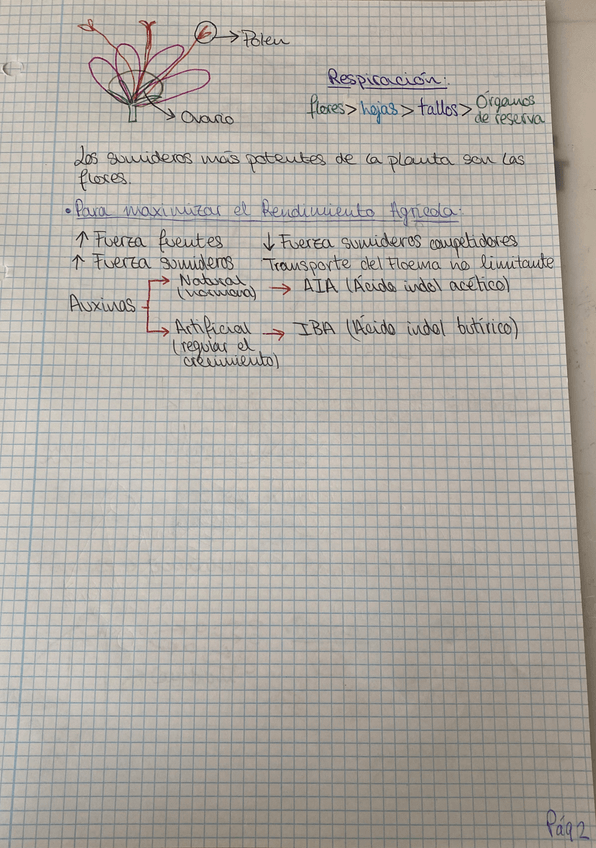 →Polen
→Ovario
Respiración:
flores > hojas > tallos > Órganos
de reserva
Los sumideros más potentes de la planta son las
flores.
• Para maximizar el Rendimiento Agrícola:
↑ Fuerza fuentes ↓ Fuerza sumideros competidores
↑ Fuerza sumideros Transporte del Floema no limitante
Auxinas
→ Natural → AIA (Ácido indol acético)
(hormona)
→ Artificial → IBA (Ácido indol butírico)
(regular el
crecimiento)
Pág 2